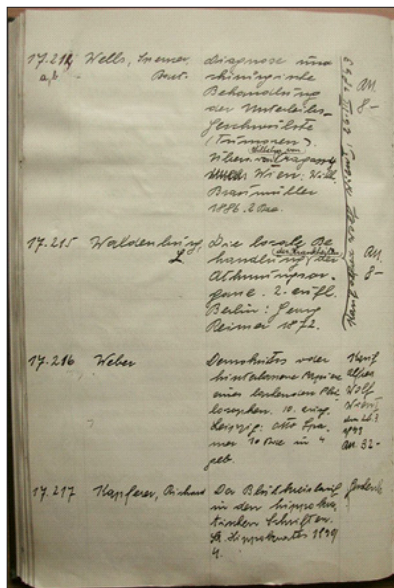 17.214 Wells, Spencer
a,b
Diagnose und
chirurgische
Behandlung
der Unterleibs-
Geschwülste
(Tumoren).
Wilhelm von
Wien: Wilh.
Braumüller
1886. 2 Bde.
An.
8-
17.215 Waldenburg,
L
Die locale Be
handlung der
der Krankheiten
Athmungsor-
gane. 2. Aufl.
Berlin: Georg
Reimer 1872.
An.
8-
17.216 Weber
Demokritos oder
hinterlassene Papiere
eines lachenden Phi
losophen. 10. Aufl.
Leipzig: Otto
10 Bde in 4
geb.
Kauf
Alfred
Wolf
Wien
1949
An. 32-
17.217 Kapferer, Richard
Der Blutkreislauf
in den hippokra
tischen Schriften.
Hippokrates 1939
4.